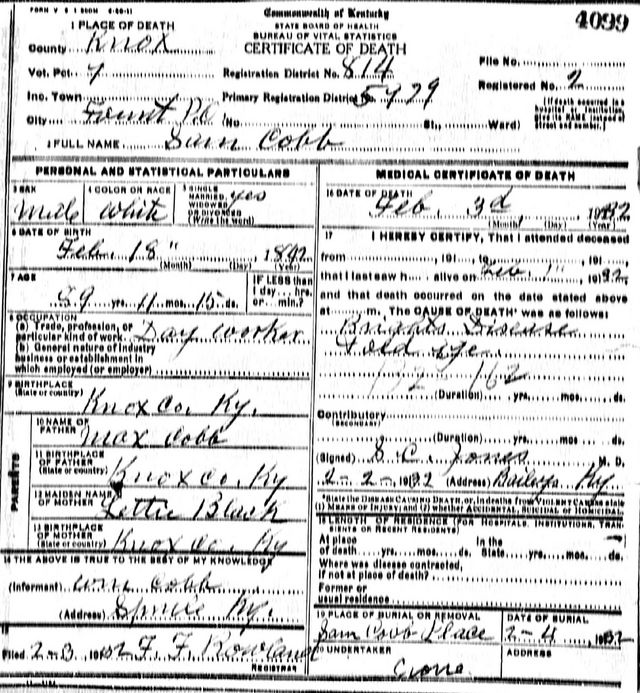 Commonwealth of Kentucky
4099
STATE BOARD OF HEALTH
BUREAU OF VITAL STATISTICS
CERTIFICATE OF DEATH
1 PLACE OF DEATH
County Knox
Vot. Pct 7
Inc. Town
City Fount P.O. (No. St., Ward)
Registration District No. 814
Primary Registration District No. 5729
File No.
Registered No. 2
[If death occurred in a
hospital or institution,
give its NAME instead of
street and number.]
2 FULL NAME Sam Cobb
PERSONAL AND STATISTICAL PARTICULARS
3 SEX
Male
4 COLOR OR RACE
White
5 SINGLE
MARRIED, yes
WIDOWED
OR DIVORCED
(Write the word)
6 DATE OF BIRTH
Feb. 18" 1842
(Month) (Day) (Year)
7 AGE
89 yrs. 11 mos. 15 ds.
IF LESS than
1 day... hrs.
or... min.?
8 OCCUPATION
(a) Trade, profession, or
particular kind of work Day worker
(b) General nature of industry
business or establishment in
which employed (or employer)
9 BIRTHPLACE
(State or country) Knox Co. Ky.
PARENTS
10 NAME OF
FATHER Max Cobb
11 BIRTHPLACE
OF FATHER
(State or country) Knox Co. Ky
12 MAIDEN NAME
OF MOTHER Lettie Black
13 BIRTHPLACE
OF MOTHER
(State or country) Knox Co. Ky
14 THE ABOVE IS TRUE TO THE BEST OF MY KNOWLEDGE
(Informant) Wm Cobb
(Address) Ky.
15
Filed 2-3 1932 F. F. Rowland
REGISTRAR
MEDICAL CERTIFICATE OF DEATH
16 DATE OF DEATH
Feb. 3d, 1932
(Month) (Day) (Year)
17 I HEREBY CERTIFY, That I attended deceased
from, 191, to, 191,
that I last saw h alive on Feb. 1" 1932
and that death occurred on the date stated above
at m. The CAUSE OF DEATH* was as follows:
Brights Disease
& old age
132 162
(Duration) yrs. mos. ds.
Contributory
(SECONDARY)
(Duration) yrs. mos. ds.
(Signed) S. C. Jones M. D.
2-2-1932 (Address) Ky.
*State the DISEASE CAUSING DEATH, or, in deaths from VIOLENT CAUSES state
(1) MEANS OF INJURY; and (2) whether ACCIDENTAL, SUICIDAL or HOMICIDAL.
18 LENGTH OF RESIDENCE (FOR HOSPITALS, INSTITUTIONS, TRAN-
SIENTS OR RECENT RESIDENTS)
At place In the
of death yrs. mos. ds. State yrs. mos. ds.
Where was disease contracted,
if not at place of death?
Former or
usual residence
19 PLACE OF BURIAL OR REMOVAL
Sam Cobb Place
DATE OF BURIAL
2-4, 1932
20 UNDERTAKER
ADDRESS